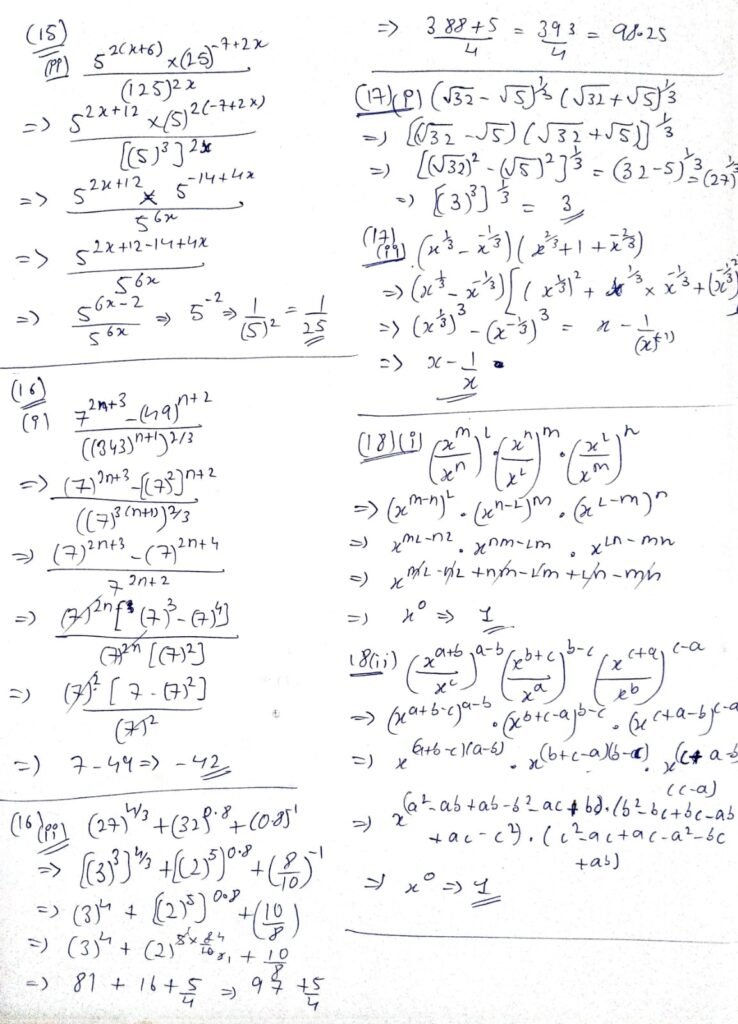 (15)
(ii) 5^{2(x+6)} × (25)^{-7+2x} / (125)^{2x}
=> 5^{2x+12} × (5)^{2(-7+2x)} / [(5)^3]^{2x}
=> 5^{2x+12} × 5^{-14+4x} / 5^{6x}
=> 5^{2x+12-14+4x} / 5^{6x}
=> 5^{6x-2} / 5^{6x} => 5^{-2} => 1/(5)^2 = 1/25
(16)
(i) 7^{2n+3} - (49)^{n+2} / ((343)^{n+1})^{2/3}
=> (7)^{2n+3} - [(7)^2]^{n+2} / ((7)^{3(n+1)})^{2/3}
=> (7)^{2n+3} - (7)^{2n+4} / 7^{2n+2}
=> (7)^{2n} [(7)^3 - (7)^4] / (7)^{2n} [(7)^2]
=> (7)^2 [7 - (7)^2] / (7)^2
=> 7 - 49 => -42
(16)(ii) (27)^{4/3} + (32)^{0.8} + (0.8)^{-1}
=> [(3)^3]^{4/3} + [(2)^5]^{0.8} + (8/10)^{-1}
=> (3)^4 + [(2)^5]^{0.8} + (10/8)
=> (3)^4 + (2)^{5×8/10} + 10/8
=> 81 + 16 + 5/4 => 97 + 5/4
=> 388+5 / 4 = 393/4 = 98.25
(17)(i) (√32 - √5)^{1/3} (√32 + √5)^{1/3}
=> [(√32 - √5) (√32 + √5)]^{1/3}
=> [(√32)^2 - (√5)^2]^{1/3} = (32-5)^{1/3} = (27)^{1/3}
=> [(3)^3]^{1/3} = 3
(17)
(ii) (x^{1/3} - x^{-1/3}) (x^{2/3} + 1 + x^{-2/3})
=> (x^{1/3} - x^{-1/3}) [(x^{1/3})^2 + x^{1/3} × x^{-1/3} + (x^{-1/3})^2
=> (x^{1/3})^3 - (x^{-1/3})^3 = x - 1/(x)^{(-1)}
=> x - 1/x
(18)(i) (x^m/x^n)^L . (x^n/x^L)^m . (x^L/x^m)^n
=> (x^{m-n})^L . (x^{n-L})^m . (x^{L-m})^n
=> x^{mL-nL} . x^{nm-Lm} . x^{Ln-mn}
=> x^{mL-nL+nm-Lm+Ln-mn}
=> x^0 => 1
18(ii) (x^{a+b}/x^c)^{a-b} (x^{b+c}/x^a)^{b-c} (x^{c+a}/x^b)^{c-a}
=> (x^{a+b-c})^{a-b} . (x^{b+c-a})^{b-c} . (x^{c+a-b})^{c-a}
=> x^{(a+b-c)(a-b)} . x^{(b+c-a)(b-c)} . x^{(c+a-b)
(c-a)}
=> x^{(a^2-ab+ab-b^2-ac+bc).(b^2-bc+bc-ab
+ac-c^2).(c^2-ac+ac-a^2-bc
+ab)}
=> x^0 => 1